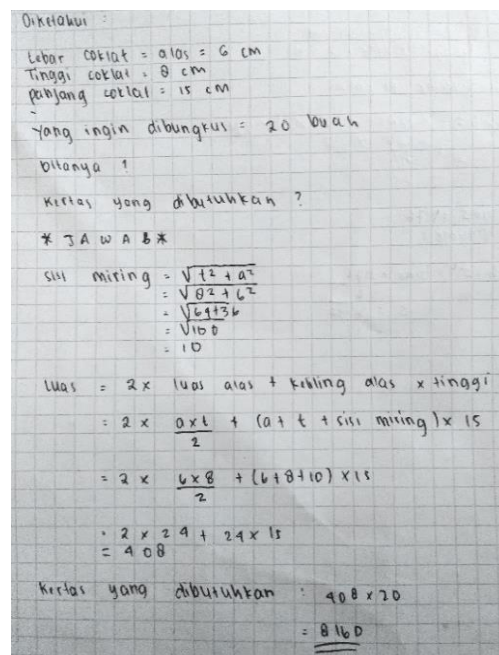 Diketahui :
Lebar coklat = alas = 6 cm
Tinggi coklat = 8 cm
panjang coklat = 15 cm
Yang ingin dibungkus = 20 buah
Ditanya ?
Kertas yang dibutuhkan ?
* JAWAB *
sisi miring = √t² + a²
= √8² + 6²
= √64+36
= √100
= 10
luas = 2 x luas alas + keliling alas x tinggi
= 2 x a x t / 2 + (a + t + sisi miring) x 15
= 2 x 6 x 8 / 2 + (6+8+10) x 15
= 2 x 24 + 24 x 15
= 408
Kertas yang dibutuhkan : 408 x 20
= 8160